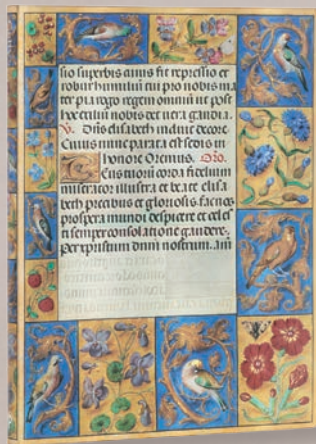 sio superbis cuius fit repressio et
robur humiliū cui pro nobis ma
ter pia rogo regem omniū ut post
hoc exiliū nobis det vera gaudia.
V. Diffusa elisabeth indue decore
Cuius nunc parata est sedis in
honore Oremus. Oro.
Deus tuorū corda fidelium
miserator illustra et beate elisa
beth precibus et gloriosis fac nos
prospera mundi despicere et celes
ti semper consolatione gaudere.
Per xpistum dnm̄ nostrum. am̄